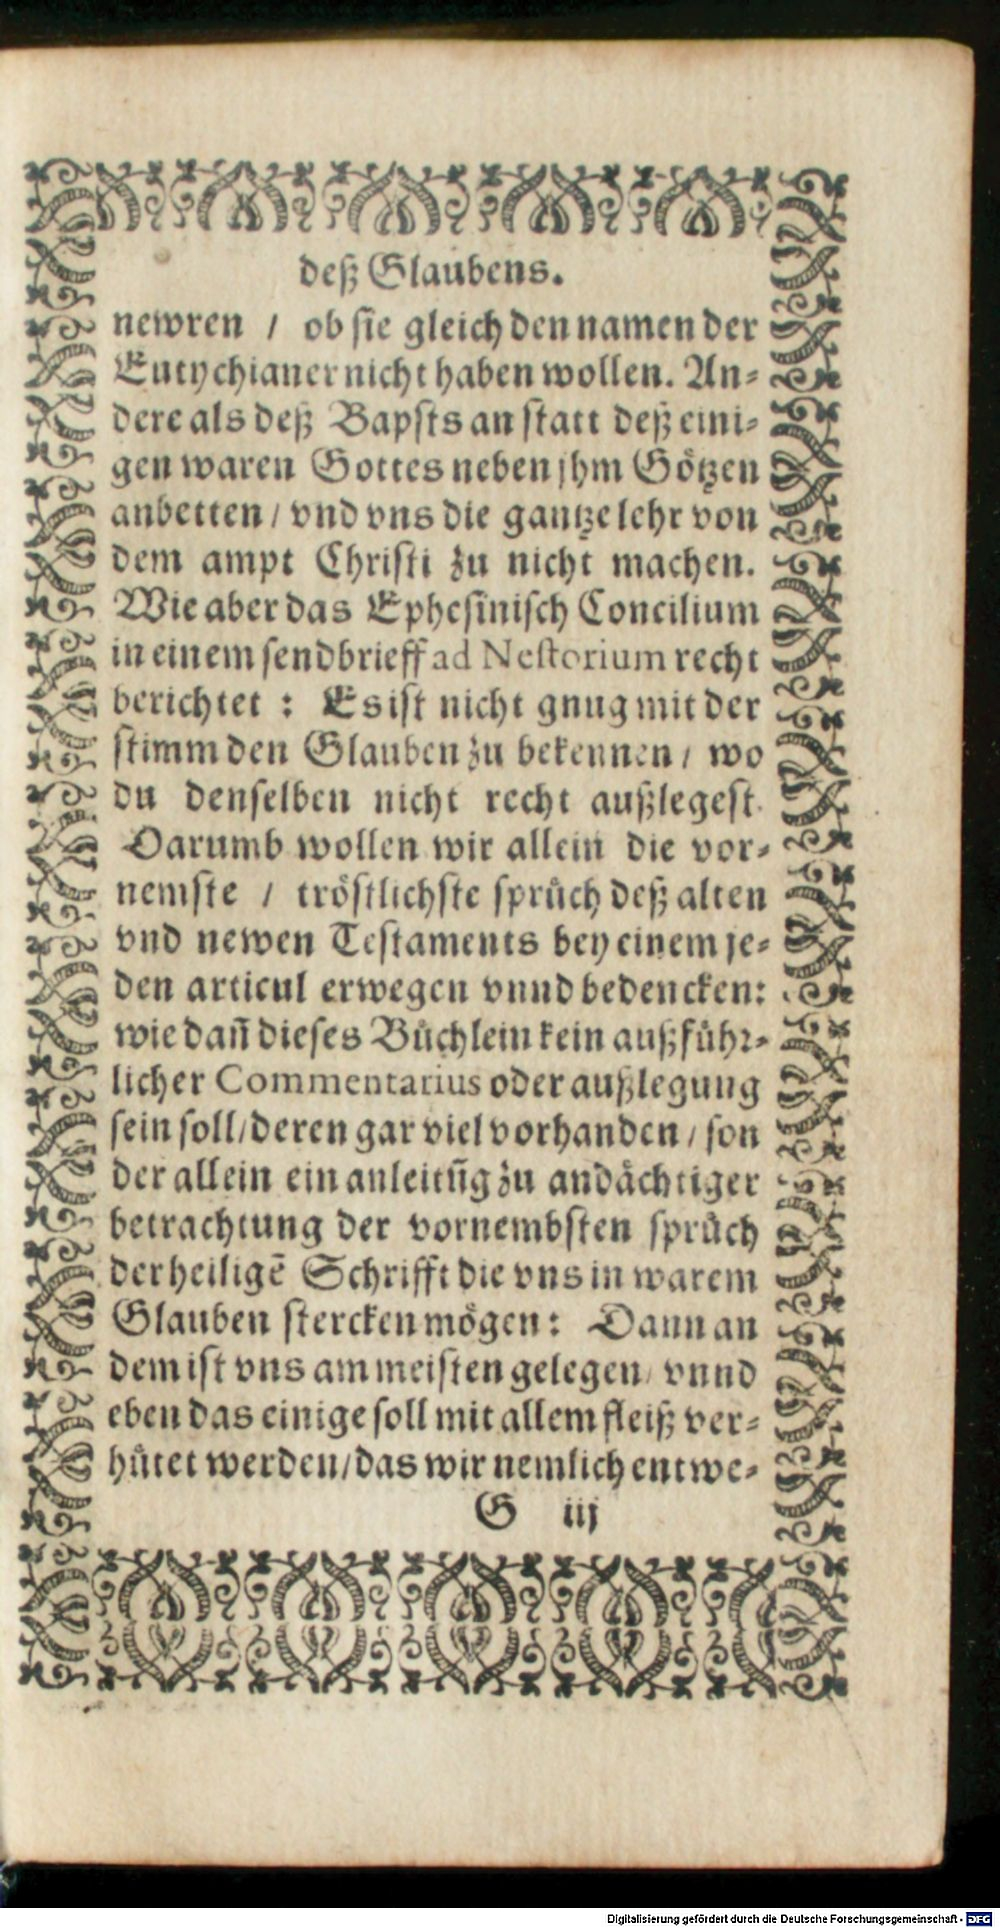 deß Glaubens.
newren / ob sie gleich den namen der
Eutychianer nicht haben wollen. An-
dere als deß Bapsts an statt deß eini-
gen waren Gottes neben jhm Götzen
anbetten / vnd vns die gantze lehr von
dem ampt Christi zu nicht machen.
Wie aber das Ephesinisch Concilium
in einem sendbrieff ad Nestorium recht
berichtet : Es ist nicht gnug mit der
stimm den Glauben zu bekennen / wo
du denselben nicht recht außlegest.
Darumb wollen wir allein die vor-
nemste / tröstlichste sprüch deß alten
vnd newen Testaments bey einem je-
den articul erwegen vnnd bedencken:
wie dañ dieses Büchlein kein außführ-
licher Commentarius oder außlegung
sein soll/deren gar viel vorhanden / son
der allein ein anleitūg zu andächtiger
betrachtung der vornembsten sprüch
der heiligē Schrifft die vns in warem
Glauben stercken mögen : Dann an
dem ist vns am meisten gelegen / vnnd
eben das einige soll mit allem fleiß ver-
hütet werden/das wir nemlich entwe-
G iij
Digitalisierung gefördert durch die Deutsche Forschungsgemeinschaft - DFG